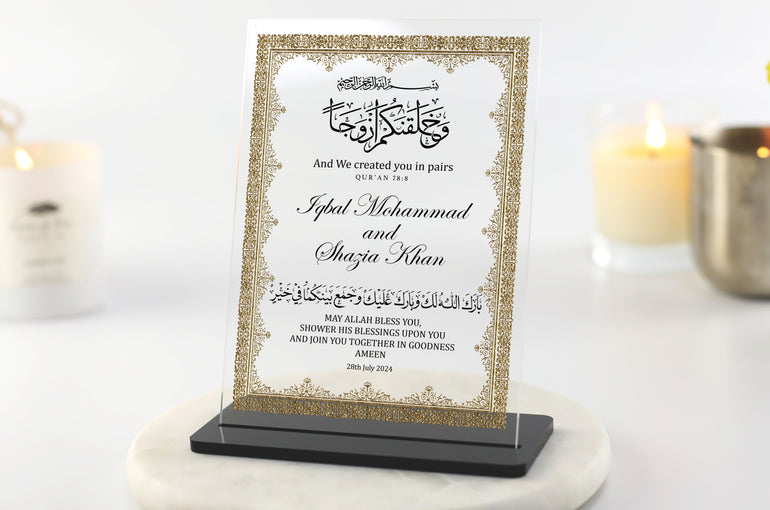 بسم الله الرحمن الرحيم
وَخَلَقْنَكُمْ أَزْوَجًا
And We created you in pairs
QUR'AN 78:8
Iqbal Mohammad
and
Shazia Khan
بَارَكَ اللهُ لَكَ وَبَارَكَ عَلَيْكَ وَجَمَعَ بَيْنَكُمَا فِي خَيْرٍ
MAY ALLAH BLESS YOU,
SHOWER HIS BLESSINGS UPON YOU
AND JOIN YOU TOGETHER IN GOODNESS
AMEEN
28th July 2024